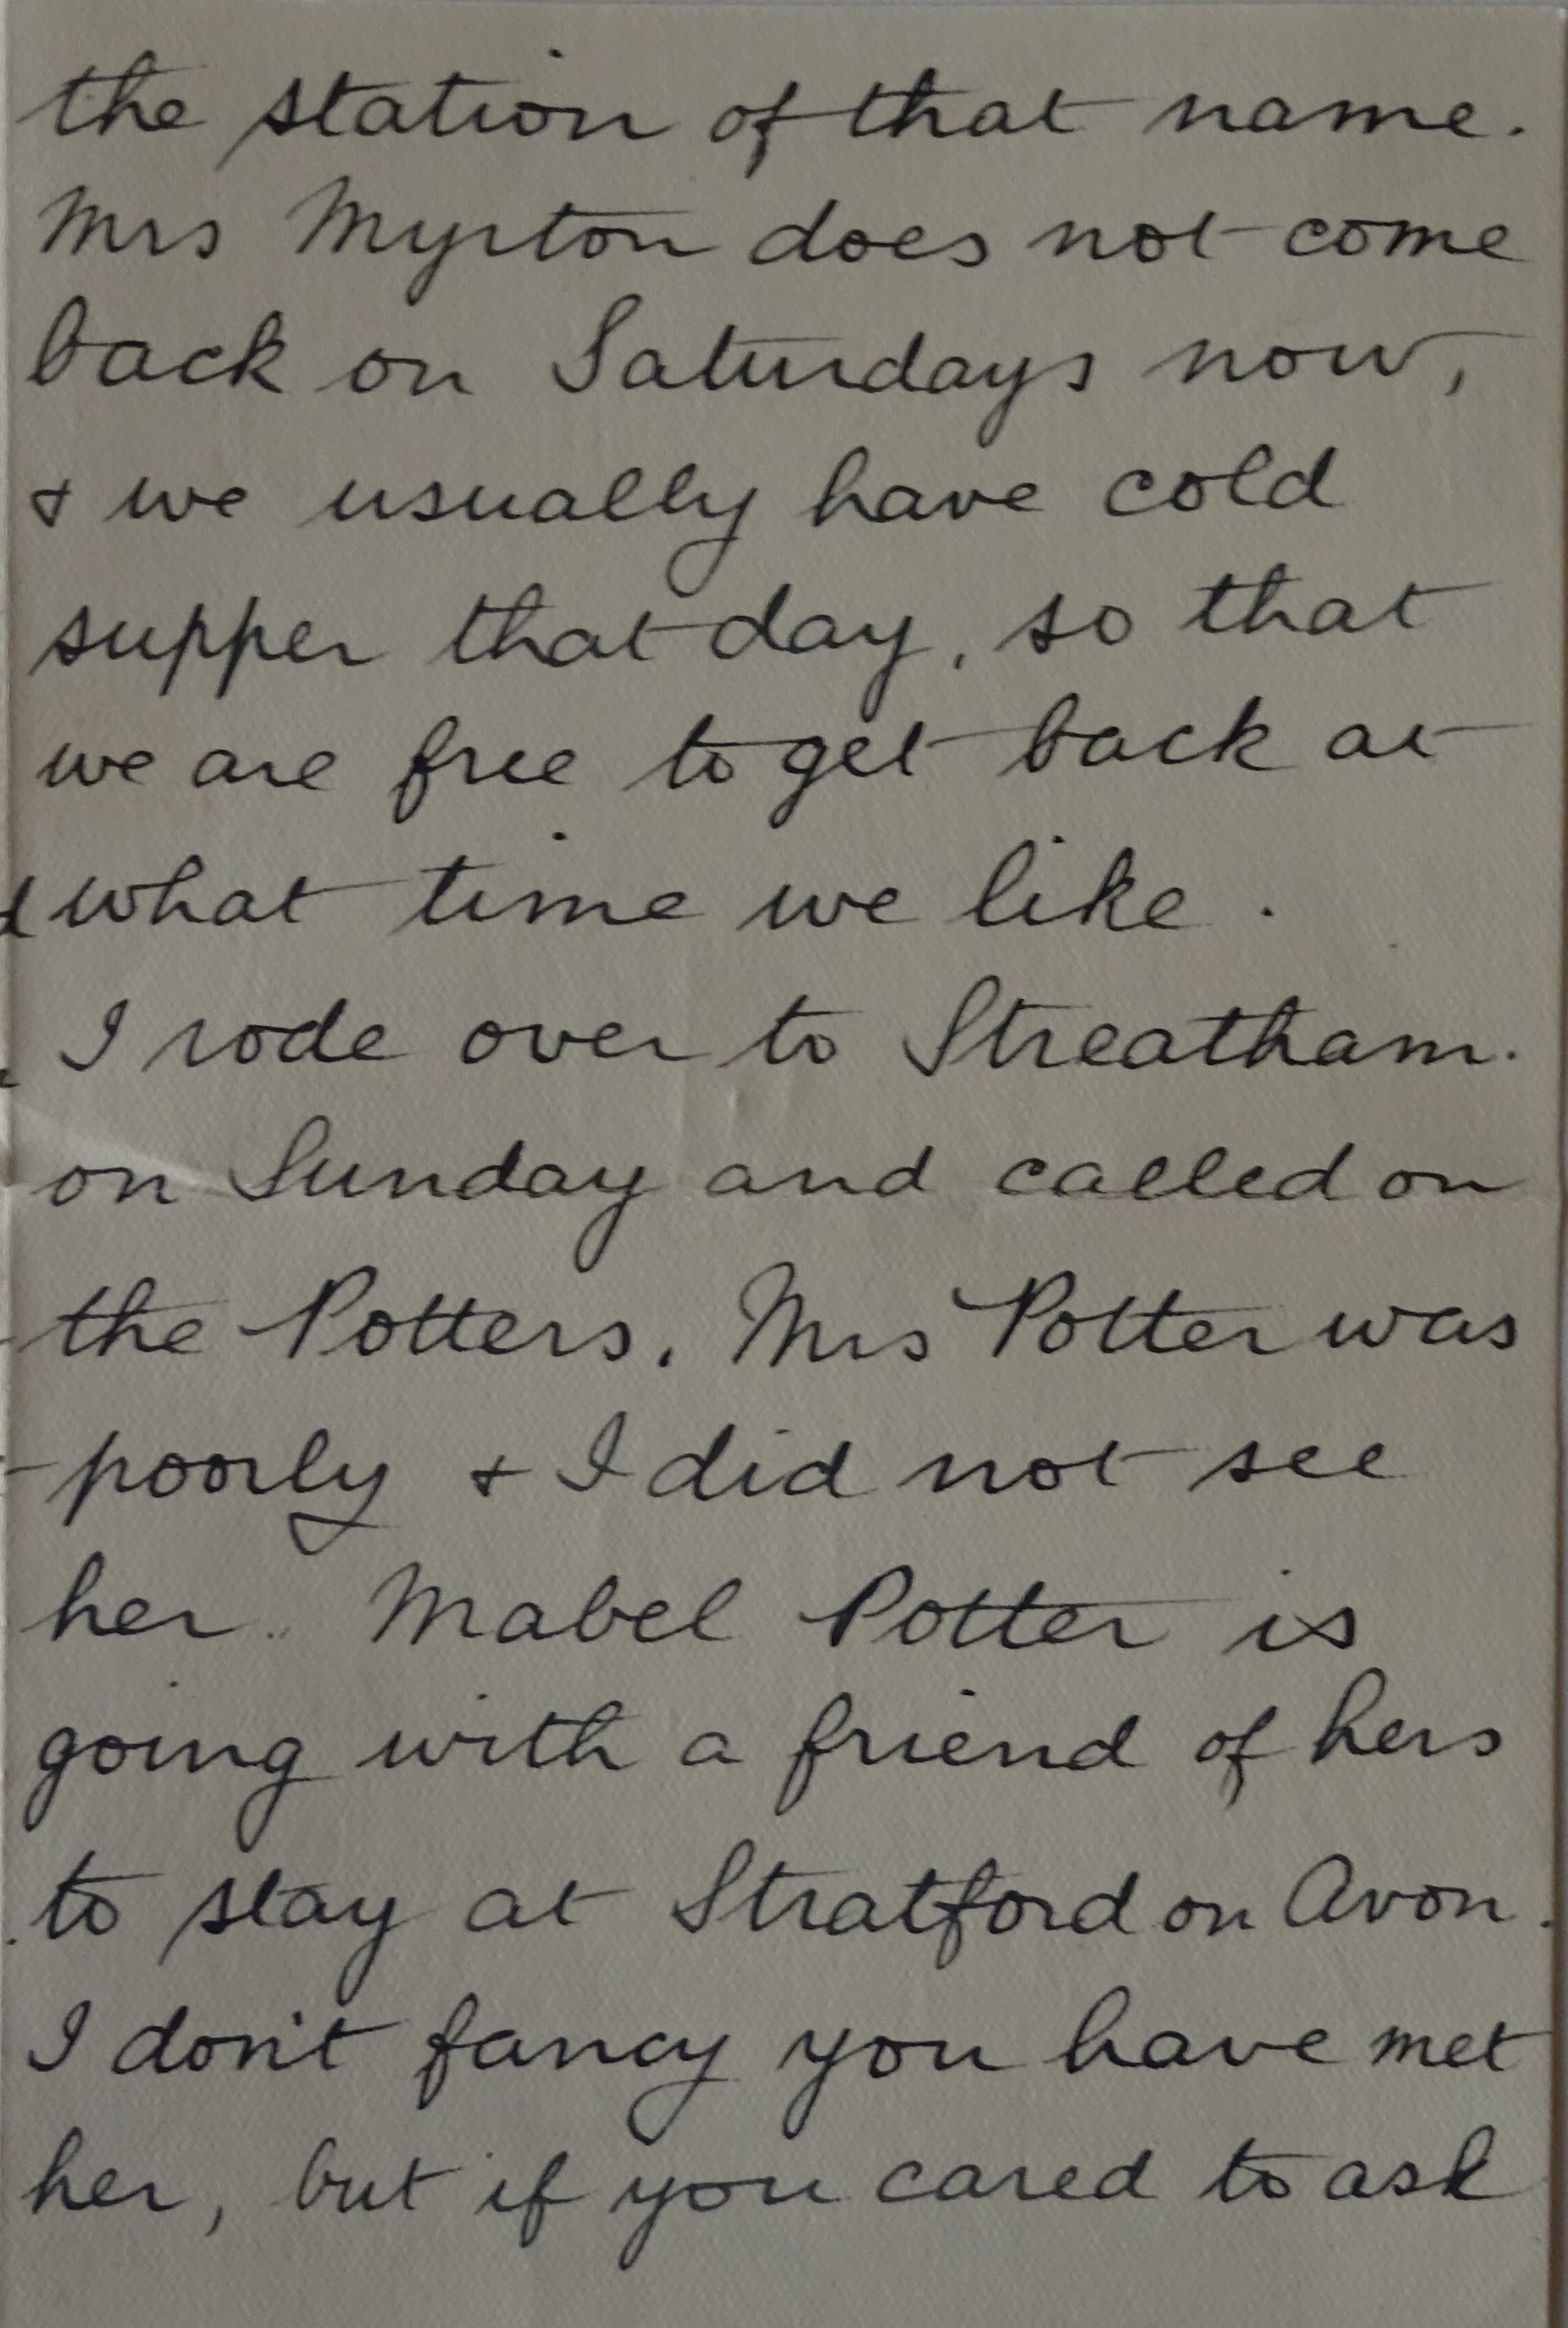 the station of that name.
Mrs Myrton does not come
back on Saturdays now,
& we usually have cold
supper that day, so that
we are free to get back at
what time we like.
I rode over to Streatham.
on Sunday and called on
the Potters. Mrs Potter was
poorly & I did not see
her. Mabel Potter is
going with a friend of hers
to stay at Stratford on Avon.
I don't fancy you have met
her, but if you cared to ask